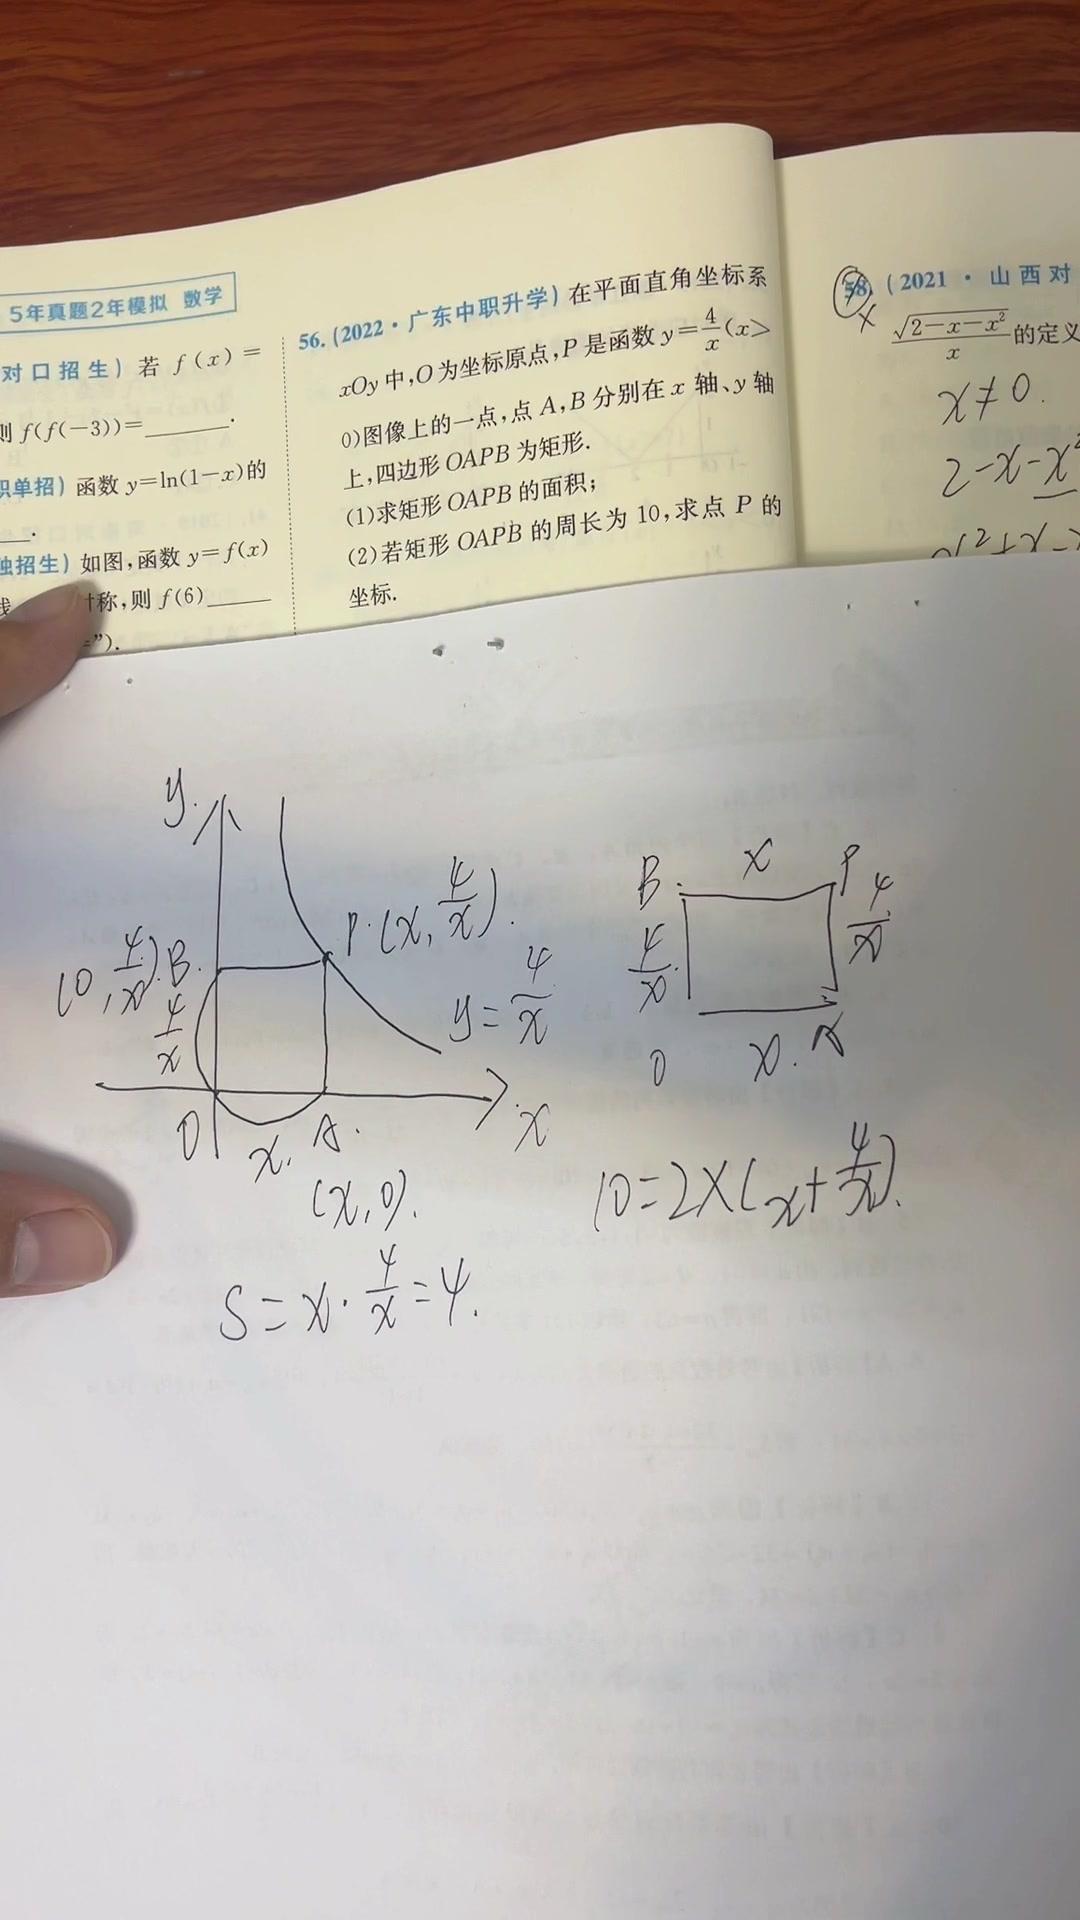 5年真题2年模拟 数学
对口招生) 若 f(x)=
则 f(f(-3))=______.
职单招) 函数 y=ln(1-x)的
____.
独招生) 如图,函数 y=f(x)
对称,则 f(6)____
=").
56. (2022·广东中职升学) 在平面直角坐标系
xOy 中,O 为坐标原点,P 是函数 y=4/x (x>
0)图像上的一点,点 A,B 分别在 x 轴、y 轴
上,四边形 OAPB 为矩形.
(1)求矩形 OAPB 的面积;
(2)若矩形 OAPB 的周长为 10,求点 P 的
坐标.
58. (2021·山西对
√(2-x-x²)/x 的定义
x≠0.
2-x-x²
y
P.(x, 4/x).
(0, 4/x) B.
4/x
y=4/x
O
x. A. x
(x,0).
S=x·4/x=4.
B x P
4/x 4/x
O x. A
10=2×(x+4/x).